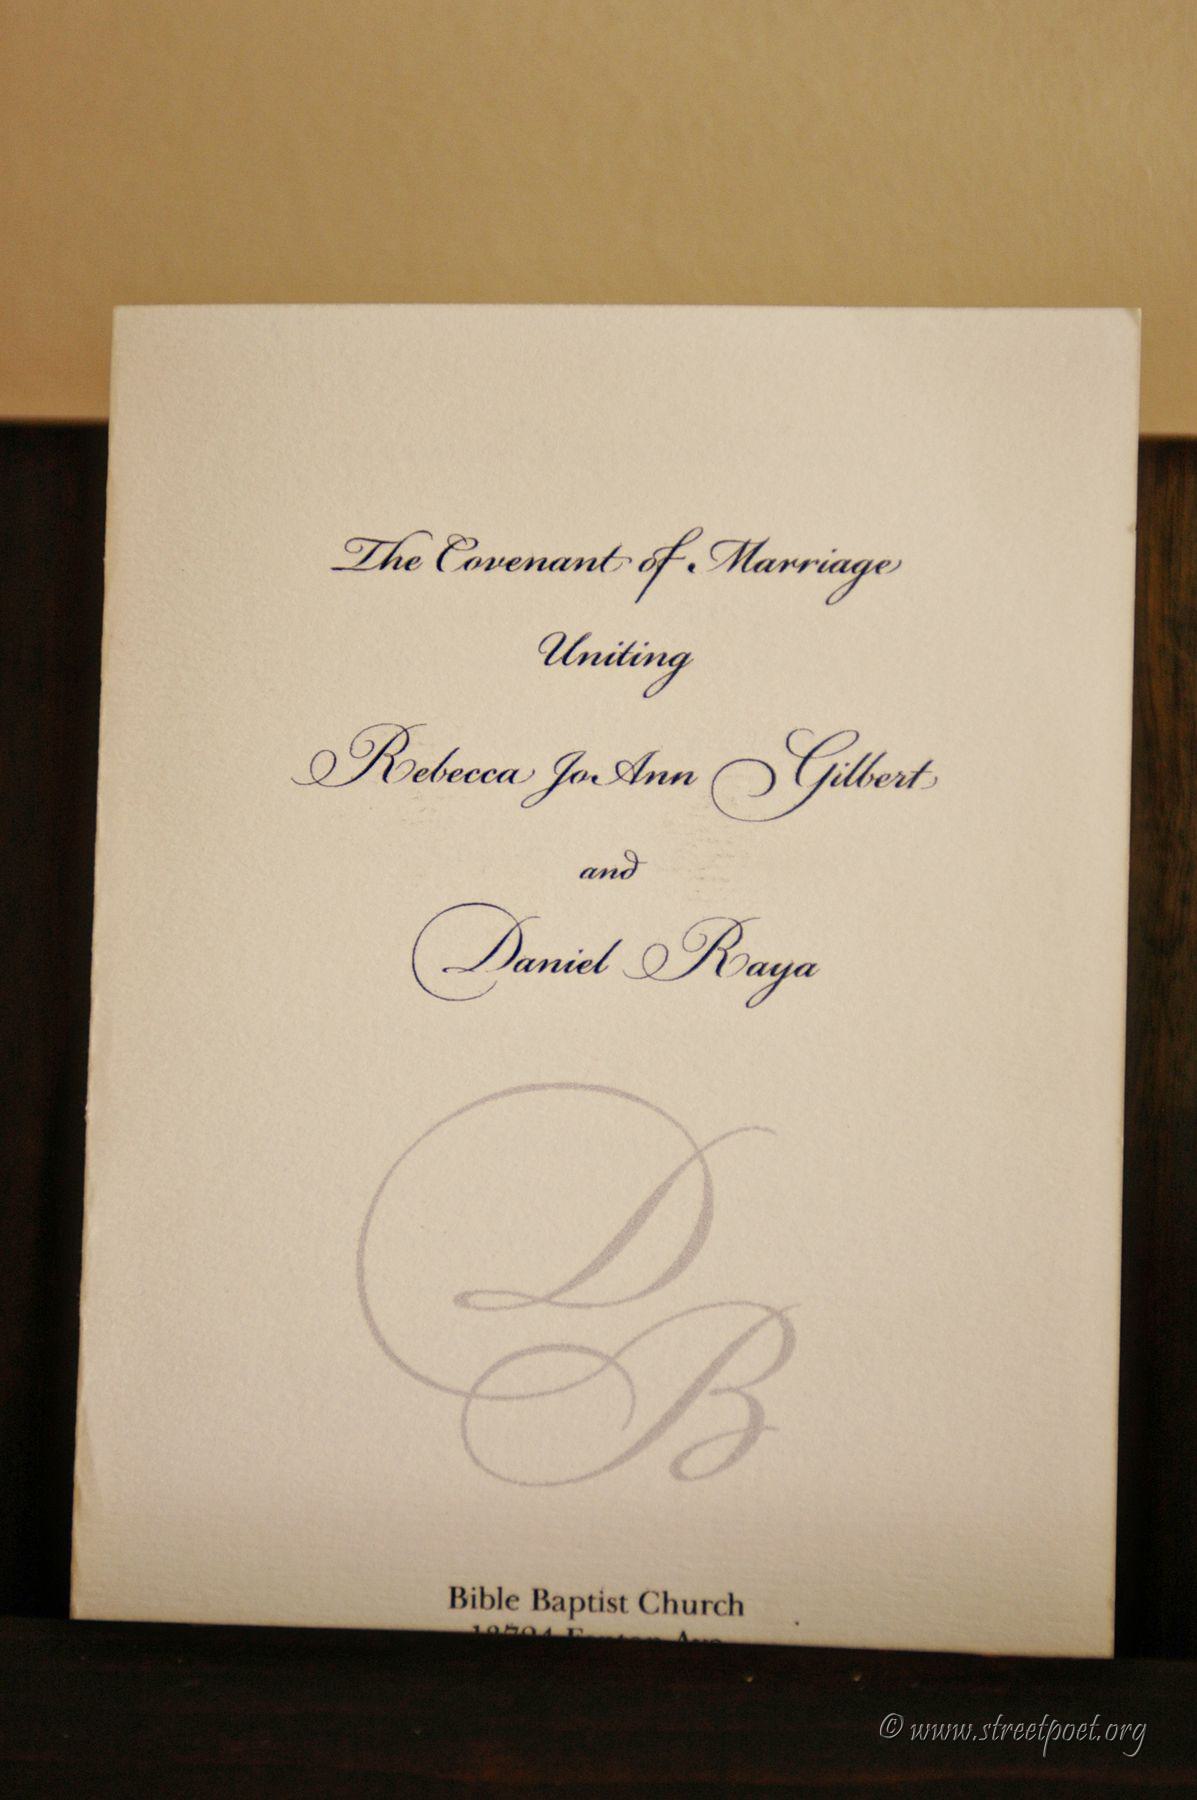 The Covenant of Marriage
Uniting
Rebecca JoAnn Gilbert
and
Daniel Raya
D
B
Bible Baptist Church
© www.streetpoet.org